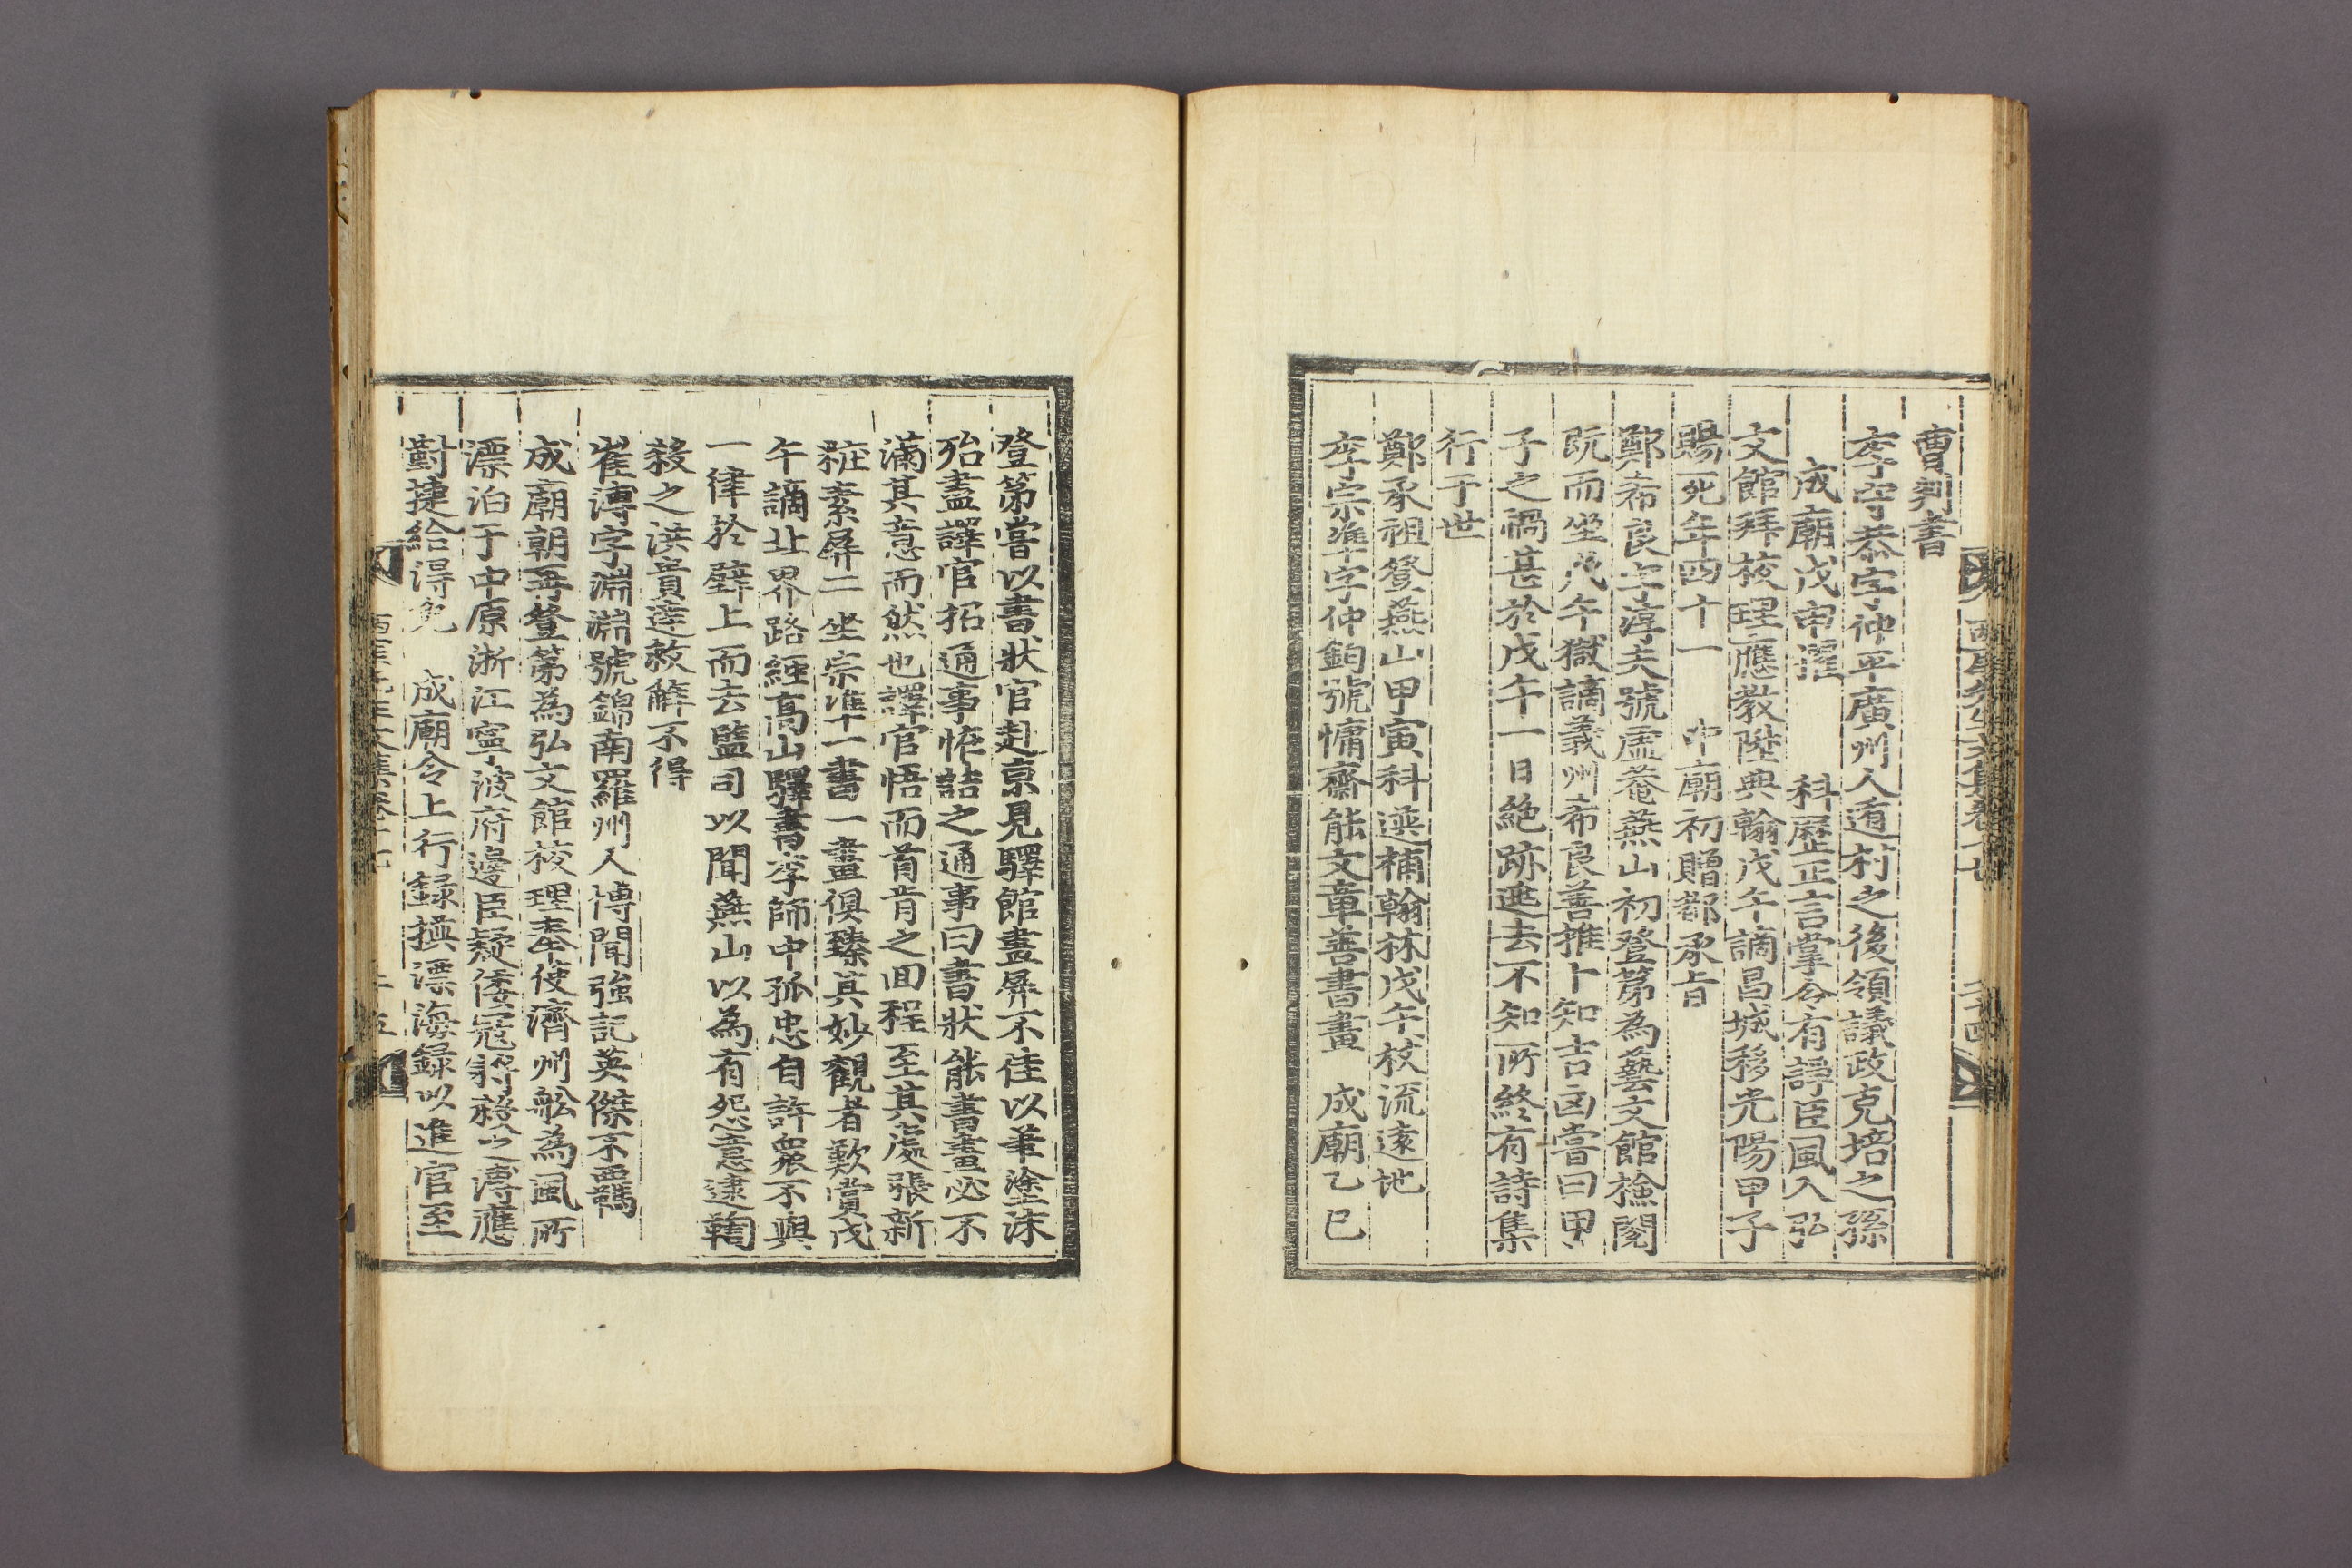 曹判書
李守恭字仲平廣州人遁村之後領議政克培之孫
成廟戊申擢　科歷正言掌令有諍臣風入弘
文館拜校理應教陞典翰戊午謫昌城移光陽甲子
賜死年四十一　中廟初贈都承旨
鄭希良字淳夫號虛菴燕山初登第為藝文館檢閱
既而坐戊午獄謫義州希良善推卜知吉凶嘗曰甲
子之禍甚於戊午一日絕跡遁去不知所終有詩集
行于世
鄭承祖登燕山甲寅科選補翰林戊午杖流遠地
李宗準字仲鈞號慵齋能文章善書畫　成廟乙巳
登第嘗以書狀官赴京見驛館畫屏不佳以筆塗沫
殆盡譯官招通事恠詰之通事曰書狀能書畫必不
滿其意而然也譯官悟而首肯之回程至其處張新
粧素屏二坐宗準一書一畫俱臻其妙觀者歎賞戊
午謫北界路經高山驛書李師中孤忠自許衆不與
一律於壁上而去監司以聞燕山以為有怨意逮鞫
殺之洪貴達救解不得
崔溥字淵淵號錦南羅州人博聞強記英傑不羈
成廟朝再登第為弘文館校理奉使濟州船為風所
漂泊于中原浙江寧波府邊臣疑倭寇將殺之溥應
對捷給得免　成廟令上行錄撰漂海錄以進官至